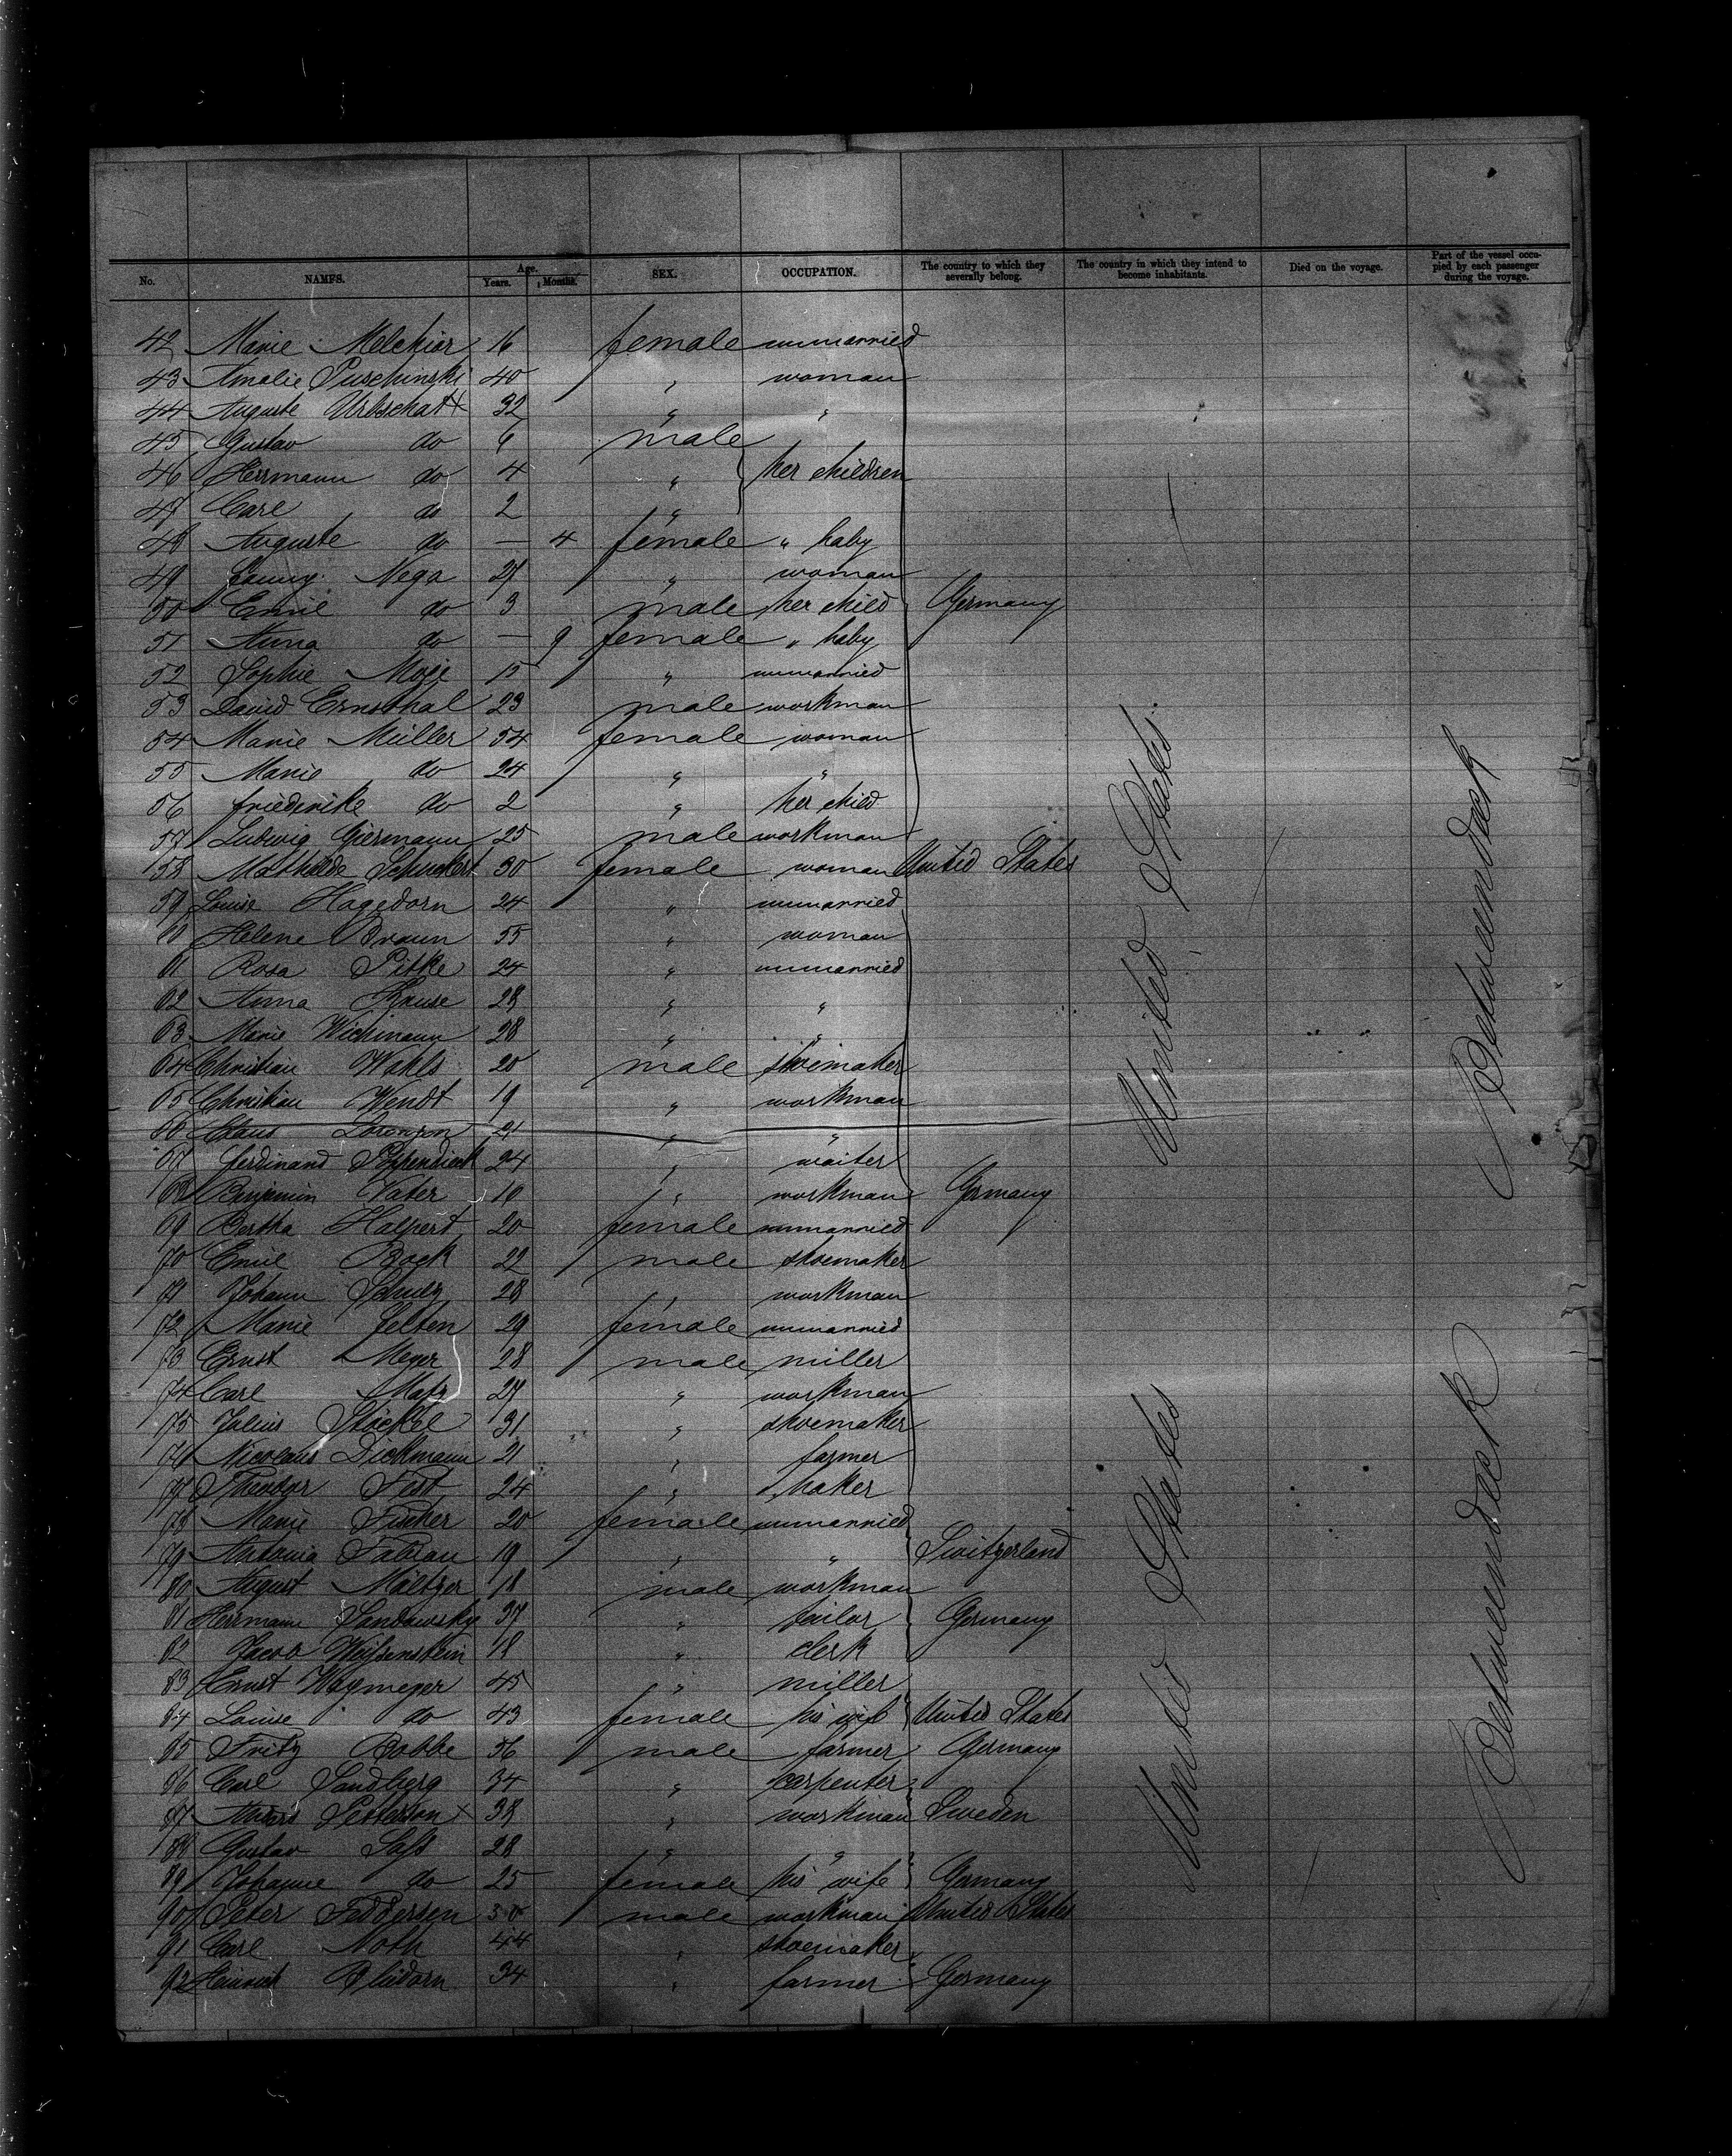 No. NAMES. Age. Years. Months. SEX. OCCUPATION. The country to which they severally belong. The country in which they intend to become inhabitants. Died on the voyage. Part of the vessel occupied by each passenger during the voyage.
42 Marie Melchior 16 female unmarried
43 Amalie Puschinski 40 " woman
44 Auguste Urbschat 32 " "
45 Gustav do 6 male
46 Herrmann do 4 " her children
47 Carl do 2 "
48 Auguste do — 4 female " baby
49 Fanny Nega 27 " woman
50 Emil do 3 male her child Germany
51 Anna do — 9 female " baby
52 Sophie Moje 15 " unmarried
53 David Ernsthal 23 male workman
54 Marie Müller 54 female woman
55 Marie do 24 " "
56 Friederike do 2 " her child
57 Ludwig Giermann 25 male workman
58 Mathilde Schuckert 30 female woman United States
59 Louise Hagedorn 24 " unmarried
60 Helene Braun 55 " woman
61 Rosa Pitke 24 " unmarried
62 Anna Krause 28 " "
63 Marie Wichmann 28 " "
64 Christian Wahls 20 male shoemaker
65 Christian Wendt 19 " workman
66 Claus Lorenzen 21 " "
67 Ferdinand Poppendieck 24 " waiter
68 Benjamin Vater 10 " workman Germany
69 Bertha Halpert 20 female unmarried
70 Emil Bock 22 male shoemaker
71 Johann Schulz 28 " workman
72 Marie Jelten 29 female unmarried
73 Ernst Meyer 28 male miller
74 Carl Matz 27 " workman
75 Julius Stöckel 31 " shoemaker
76 Nicolaus Dickmann 21 " farmer
77 Theodor Fest 24 " baker
78 Marie Finker 20 female unmarried
79 Antonia Fabian 19 " " Switzerland
80 August Mältzer 18 male workman
81 Herrmann Sandowsky 37 " tailor Germany
82 Jacob Weissenstein 18 " clerk
83 Ernst Waymeyer 45 " miller
84 Louise do 43 female his wife United States
85 Fritz Bobbe 56 male farmer Germany
86 Carl Sandberg 34 " carpenter
87 Anders Petterson 38 " workman Sweden
88 Gustav Saft 28 " "
89 Johanne do 25 female his wife Germany
90 Peter Feddersen 30 male workman United States
91 Carl Noth 44 " shoemaker
92 Heinrich Blidorn 34 " farmer Germany
United States.
United States
Betweendeck
Betweendeck